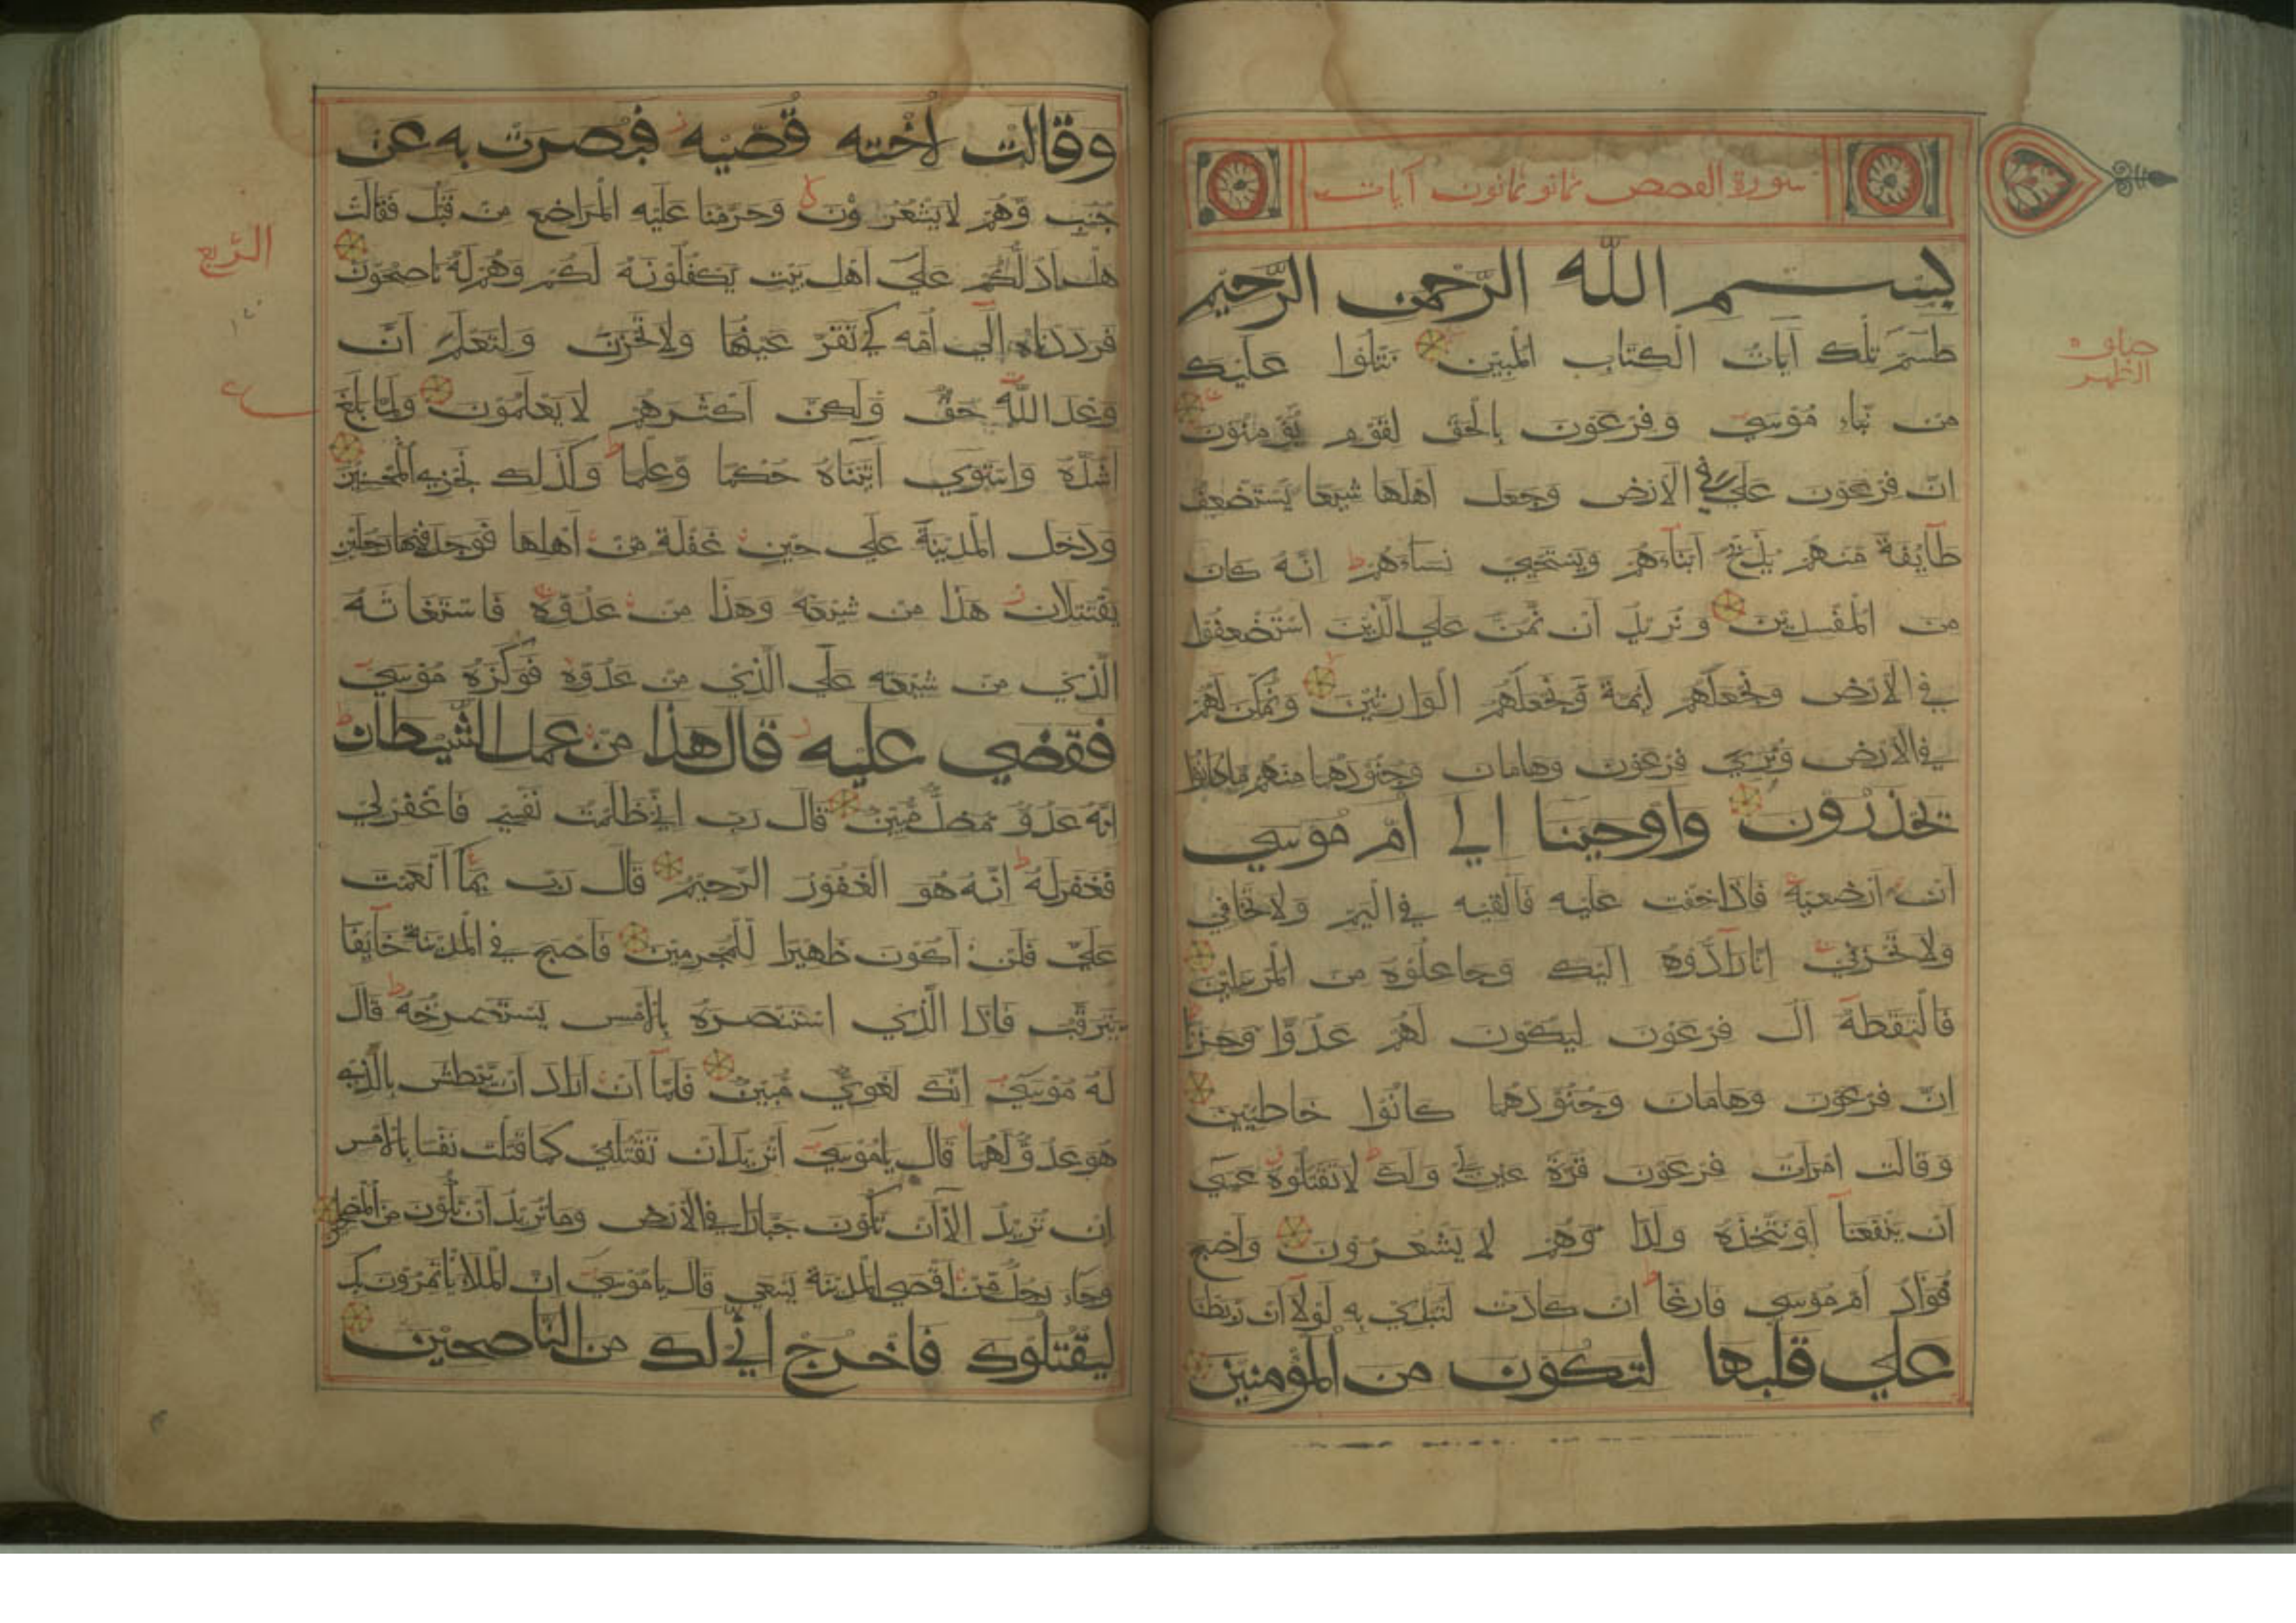 سورة القصص ثمانو ثمانون آيات
بسم الله الرحمن الرحيم
طسم تلك آيات الكتاب المبين نتلوا عليك
من نباء موسي وفرعون بالحق لقوم يؤمنون
ان فرعون علي في الارض وجعل اهلها شيعا يستضعف
طآيفة منهم يذبح ابنآءهم ويستحيي نسآءهم انه كان
من المفسدين ونريد ان نمن علي الذين استضعفوا
في الارض ونجعلهم ايمة ونجعلهم الوارثين ونمكن لهم
في الارض ونري فرعون وهامان وجنودهما منهم ماكانوا
يحذرون واوحينا الي ام موسي
ان ارضعيه فاذا خفت عليه فالقيه في اليم ولا تخافي
ولا تحزني انا رآدوه اليك وجاعلوه من المرسلين
فالتقطه آل فرعون ليكون لهم عدوا وحزنا
ان فرعون وهامان وجنودهما كانوا خاطيين
وقالت امرات فرعون قرة عين لي ولك لا تقتلوه عسي
ان ينفعنا او نتخذه ولدا وهم لا يشعرون واصبح
فواد ام موسي فارغا ان كادت لتبدي به لولا ان ربطنا
علي قلبها لتكون من المؤمنين
وقالت لاخته قصيه فبصرت به عن
جنب وهم لايشعرون وحرمنا عليه المراضع من قبل فقالت
هل ادلكم علي اهل بيت يكفلونه لكم وهم له ناصحون
فرددناه الي امه كي تقر عينها ولا تحزن ولتعلم ان
وعد الله حق ولكن اكثرهم لا يعلمون ولما بلغ
اشده واستوي آتيناه حكما وعلما وكذلك نجزي المحسنين
ودخل المدينة علي حين غفلة من اهلها فوجد فيها رجلين
يقتتلان هذا من شيعته وهذا من عدوه فاستغاثه
الذي من شيعته علي الذي من عدوه فوكزه موسي
فقضي عليه قال هذا من عمل الشيطان
انه عدو مضل مبين قال رب اني ظلمت نفسي فاغفرلي
فغفرله انه هو الغفور الرحيم قال رب بمآ انعمت
علي فلن اكون ظهيرا للمجرمين فاصبح في المدينة خآيفا
يترقب فاذا الذي استنصره بالامس يستصرخه قال
له موسي انك لغوي مبين فلمآ ان اراد ان يبطش بالذي
هو عدو لهما قال ياموسي اتريد ان تقتلني كما قتلت نفسا بالامس
ان تريد الآ ان تكون جبارا في الارض وما تريد ان تكون من المصلحين
وجآء رجل من اقصي المدينة يسعي قال ياموسي ان الملاء ياتمرون بك
ليقتلوك فاخرج اني لك من الناصحين
الربع